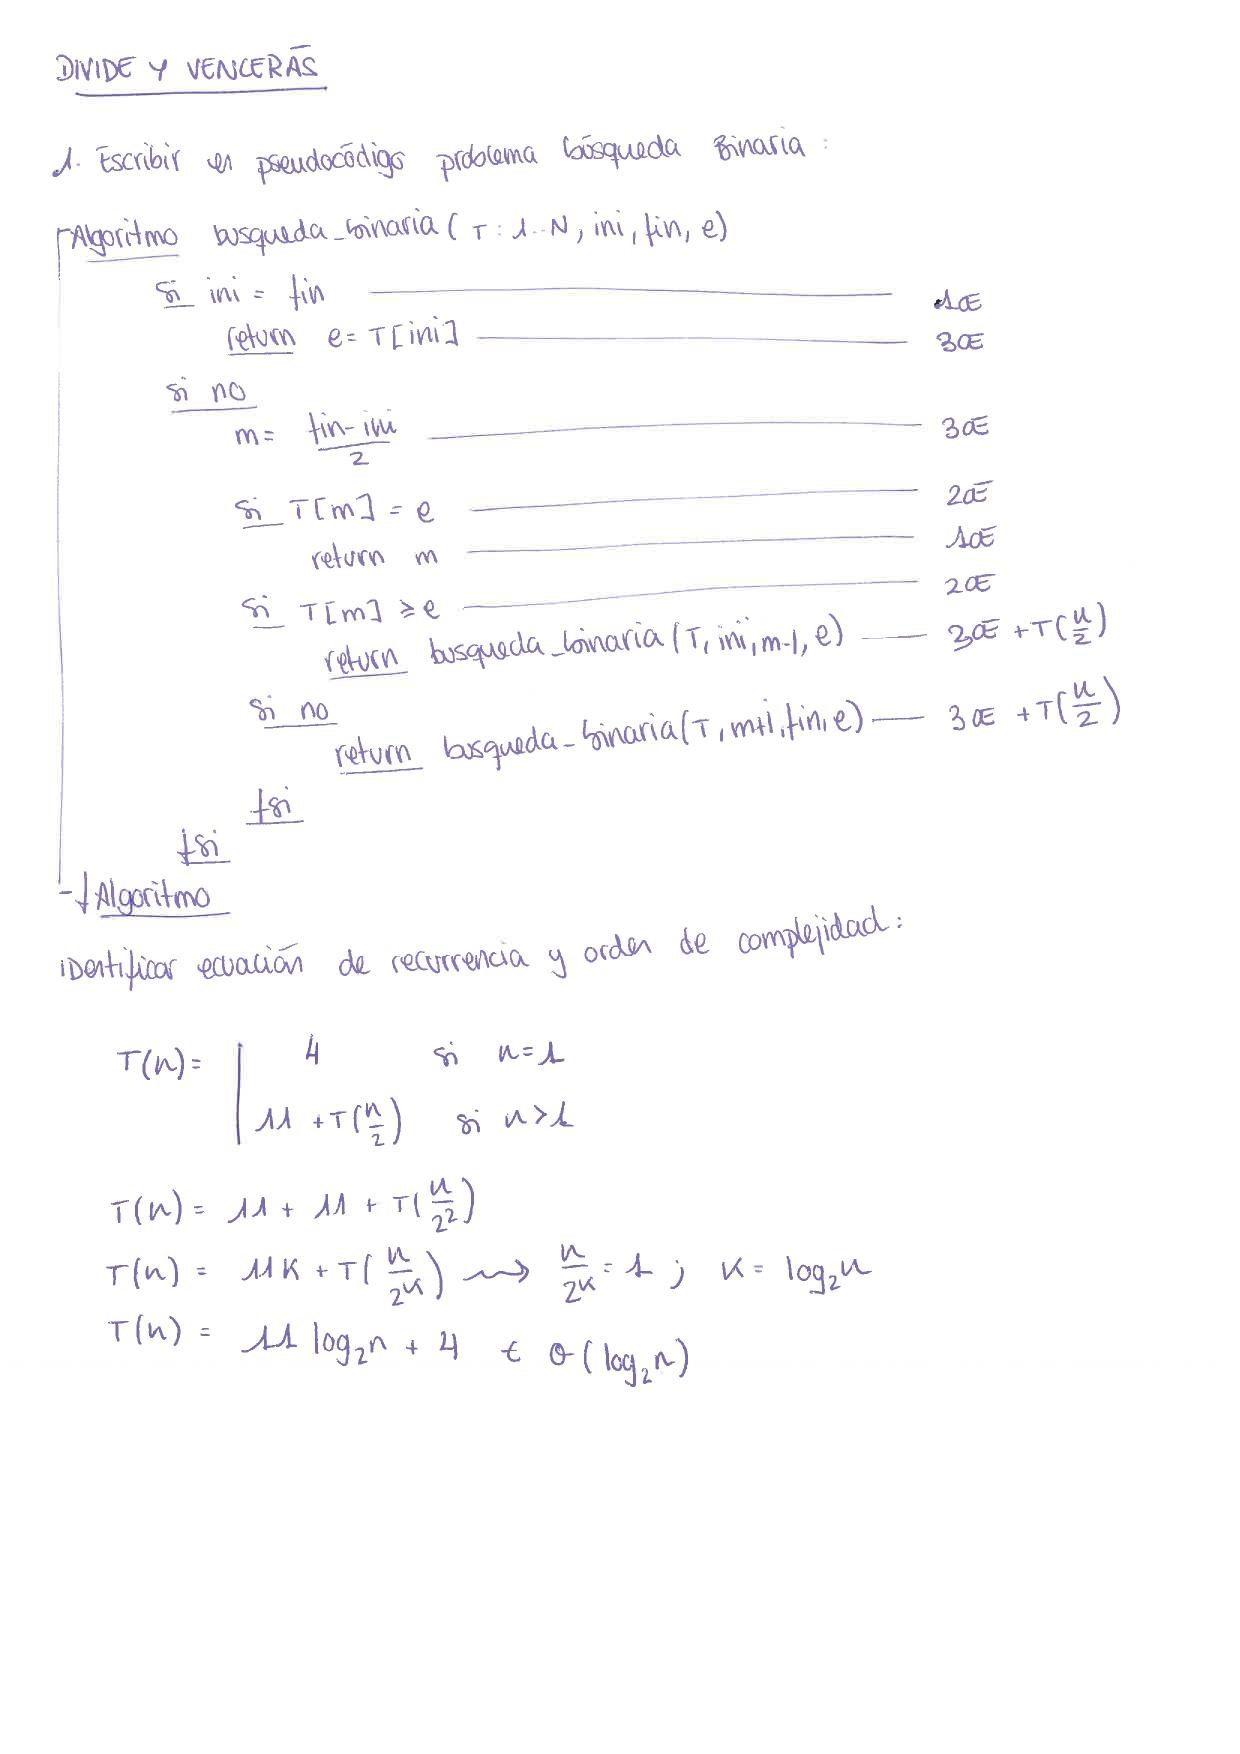 DIVIDE Y VENCERÁS
1. Escribir en pseudocódigo problema búsqueda Binaria:
Algoritmo busqueda_binaria (T: 1..N, ini, fin, e)
si ini = fin 1OE
return e = T[ini] 3OE
si no
m = (fin - ini)/2 3OE
si T[m] = e 2OE
return m 1OE
si T[m] ≥ e 2OE
return busqueda_binaria (T, ini, m-1, e) 3OE + T(n/2)
si no
return busqueda_binaria (T, m+1, fin, e) 3OE + T(n/2)
fsi
fsi
fAlgoritmo
identificar ecuación de recurrencia y orden de complejidad:
T(n) = | 4 si n=1
11 + T(n/2) si n>1
T(n) = 11 + 11 + T(n/2²)
T(n) = 11K + T(n/2ᴷ) ⇝ n/2ᴷ = 1; K = log₂n
T(n) = 11 log₂n + 4 ∈ θ(log₂n)